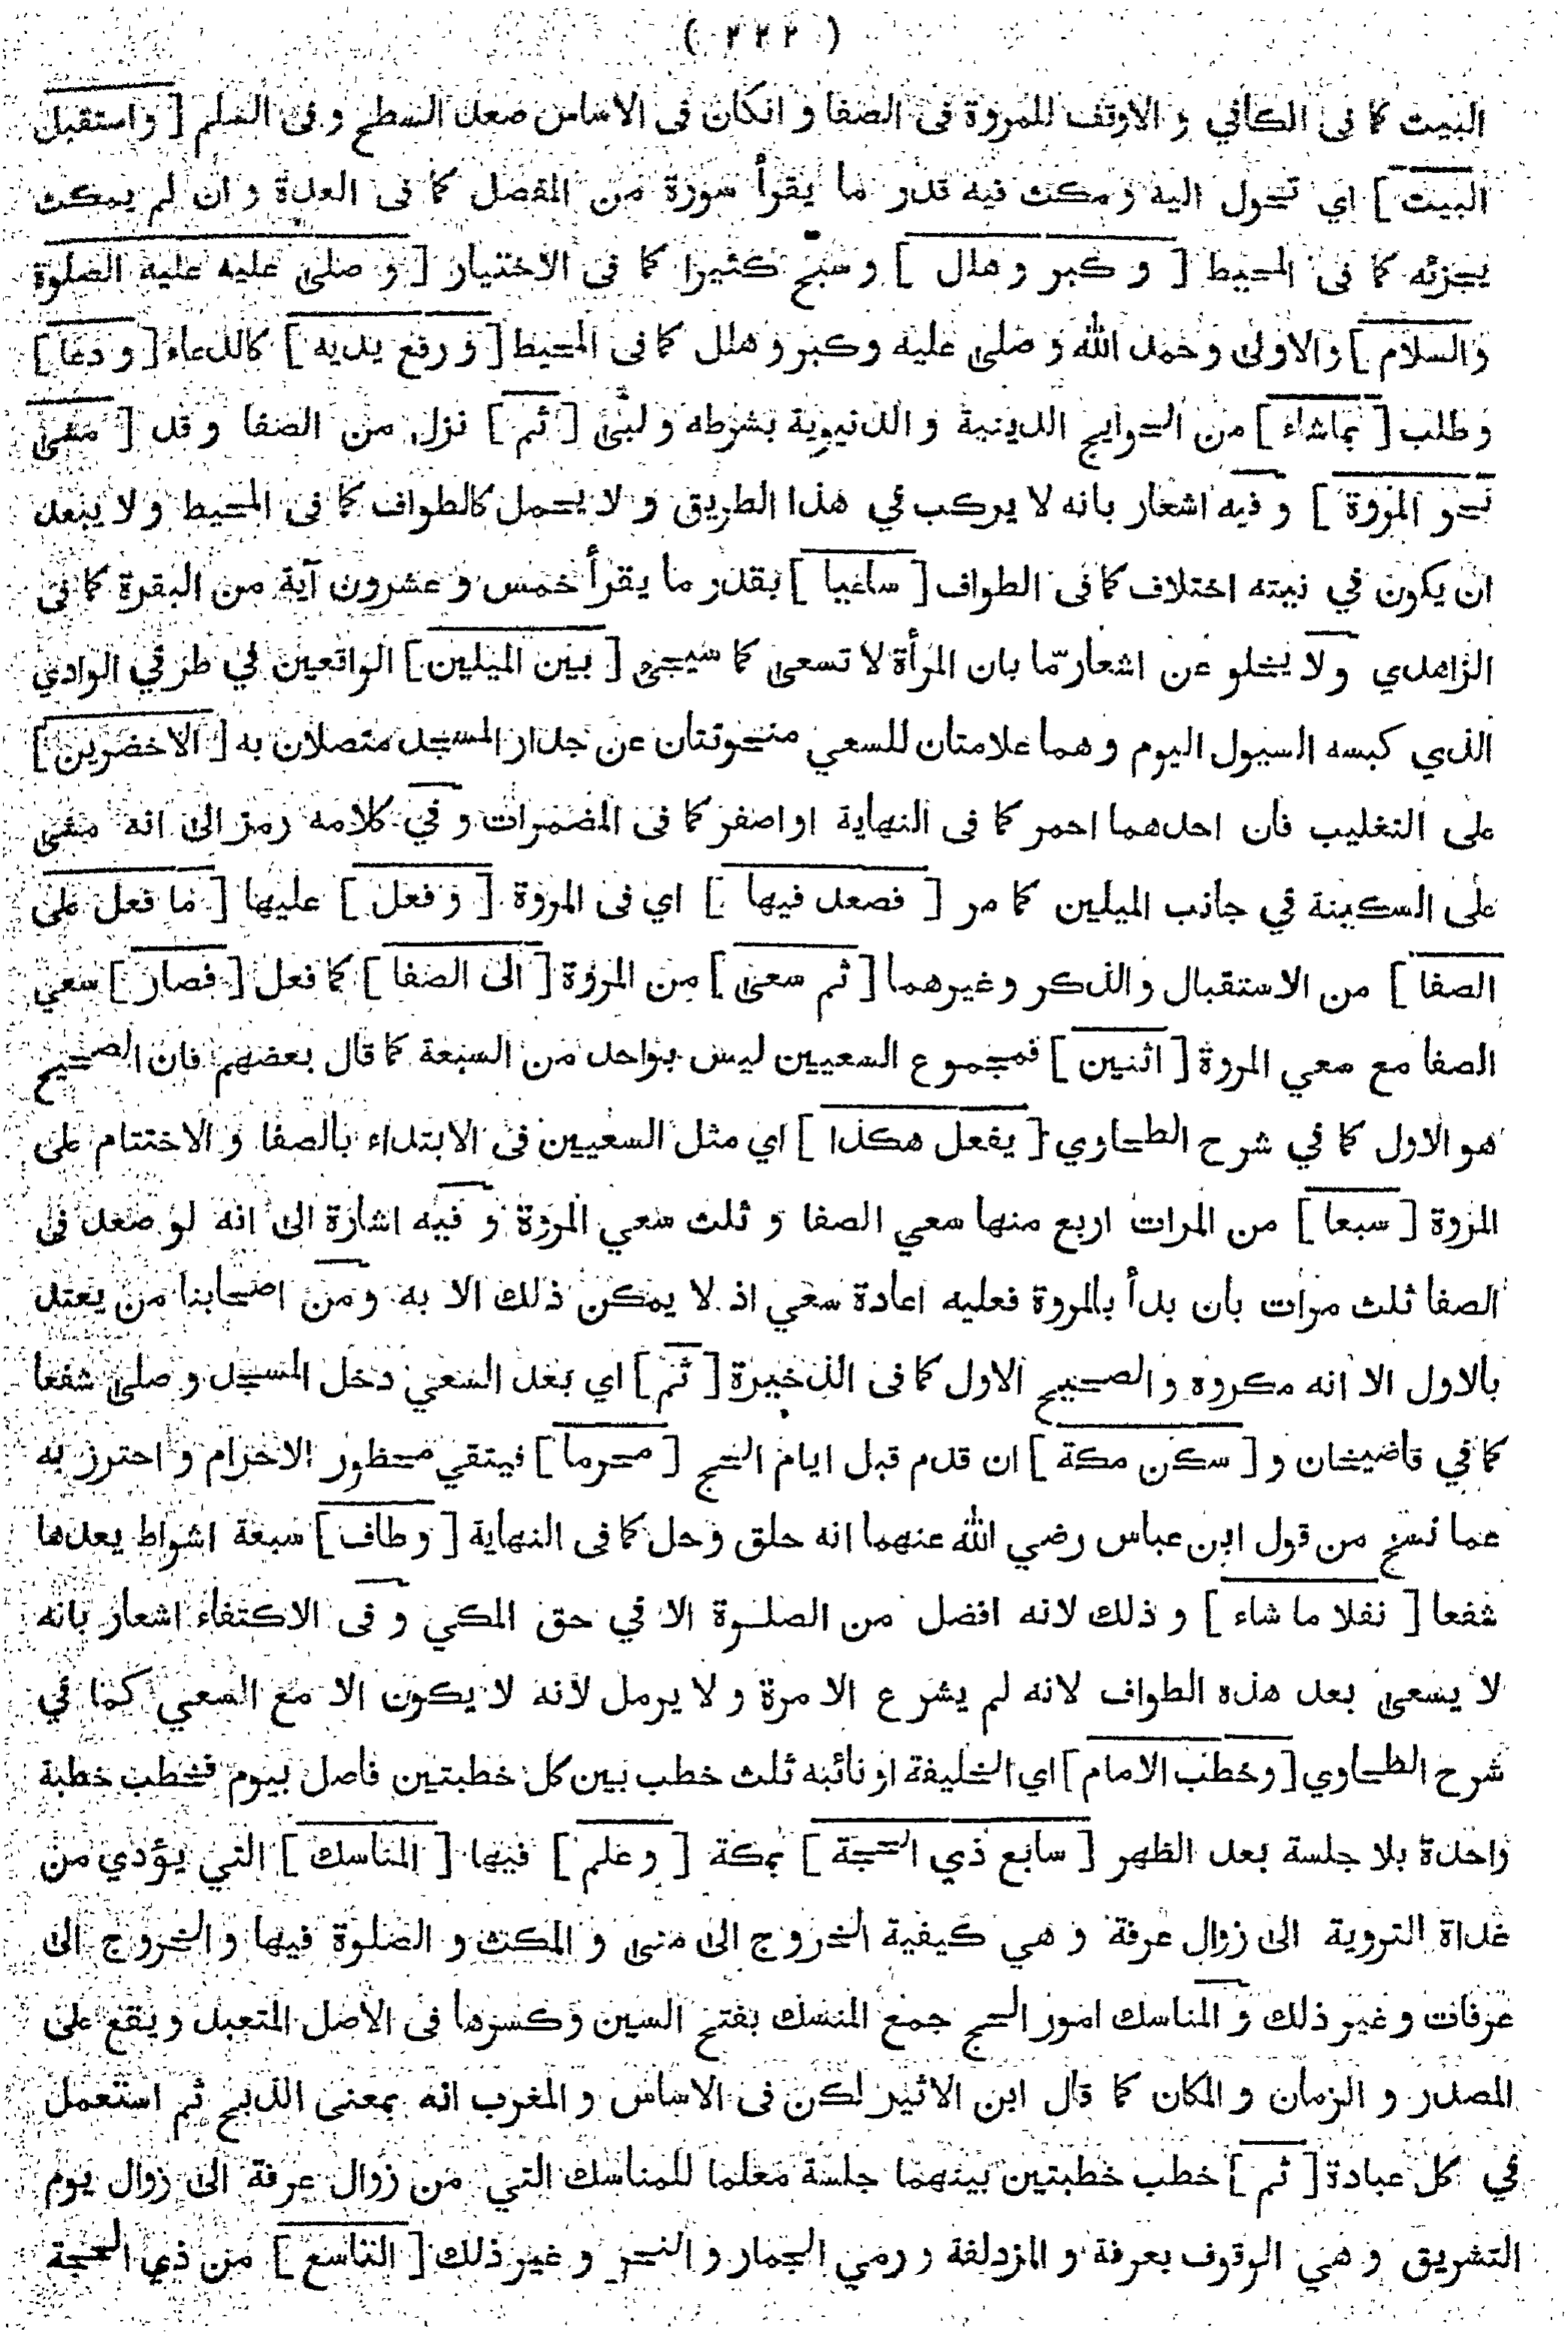 ( ٢٢٢ )
البيت كما فى الكافي و الاوقف للمروة فى الصفا و انكان فى الاساس صعد السطح و فى السلم [ واستقبل
البيت ] اي تحول اليه و مكث فيه قدر ما يقرأ سورة من المفصل كما فى العدة و ان لم يمكث
يجزئه كما فى المحيط [ و كبر و هلل ] و سبح كثيرا كما فى الاختيار [ و صلى عليه عليه الصلوة
والسلام ] والاولى وحمد الله و صلى عليه وكبر و هلل كما فى المحيط [ و رفع يديه ] كالدعاء [ و دعا ]
وطلب [ بماشاء ] من الحوايج الدينية و الدنيوية بشرطه و لبّى [ ثم ] نزل من الصفا و قد [ مشى
نحو المروة ] و فيه اشعار بانه لا يركب في هذا الطريق و لا يحمل كالطواف كما فى المحيط و لا يبعد
ان يكون في نيته اختلاف كما فى الطواف [ ساعيا ] بقدر ما يقرأ خمس و عشرون آية من البقرة كما فى
الزاهدي و لا يخلو عن اشعار مّا بان المرأة لا تسعى كما سيجئ [ بين الميلين ] الواقعين في طرفي الوادي
الذي كبسه السيول اليوم و هما علامتان للسعي منحوتتان عن جدار المسجد متصلان به [ الاخضرين ]
على التغليب فان احدهما احمر كما فى النهاية او اصفر كما فى المضمرات و في كلامه رمز الى انه مشى
على السكينة في جانب الميلين كما مر [ فصعد فيها ] اي فى المروة [ و فعل ] عليها [ ما فعل على
الصفا ] من الاستقبال والذكر وغيرهما [ ثم سعى ] من المروة [ الى الصفا ] كما فعل [ فصار ] سعي
الصفا مع سعي المروة [ اثنين ] فمجموع السعيين ليس بواحد من السبعة كما قال بعضهم فان الصحيح
هو الاول كما في شرح الطحاوي [ يفعل هكذا ] اي مثل السعيين فى الابتداء بالصفا و الاختتام على
المروة [ سبعا ] من المرات اربع منها سعي الصفا و ثلث سعي المروة و فيه اشارة الى انه لو صعد فى
الصفا ثلث مرات بان بدأ بالمروة فعليه اعادة سعي اذ لا يمكن ذلك الا به و من اصحابنا من يعتد
بالاول الا انه مكروه و الصحيح الاول كما فى الذخيرة [ ثم ] اي بعد السعي دخل المسجد و صلى شفعا
كما في قاضيخان و [ سكن مكة ] ان قدم قبل ايام الحج [ محرما ] فيتقي محظور الاحرام و احترز به
عما نسخ من قول ابن عباس رضي الله عنهما انه حلق و حل كما فى النهاية [ و طاف ] سبعة اشواط يعدها
شفعا [ نفلا ما شاء ] و ذلك لانه افضل من الصلوة الا في حق المكي و فى الاكتفاء اشعار بانه
لا يسعى بعد هذه الطواف لانه لم يشرع الا مرة و لا يرمل لانه لا يكون الا مع السعي كما في
شرح الطحاوي [ وخطب الامام ] اي الخليفة او نائبه ثلث خطب بين كل خطبتين فاصل بيوم فخطب خطبة
واحدة بلا جلسة بعد الظهر [ سابع ذي الحجة ] بمكة [ و علم ] فيها [ المناسك ] التي يؤدي من
غداة التروية الى زوال عرفة و هي كيفية الخروج الى منى و المكث و الصلوة فيها و الخروج الى
عرفات و غير ذلك و المناسك امور الحج جمع المنسك بفتح السين و كسرها فى الاصل المتعبد و يقع على
المصدر و الزمان و المكان كما قال ابن الاثير لكن فى الاساس و المغرب انه بمعنى الذبح ثم استعمل
في كل عبادة [ ثم ] خطب خطبتين بينهما جلسة معلما للمناسك التي من زوال عرفة الى زوال يوم
التشريق و هي الوقوف بعرفة و المزدلفة و رمي الجمار و النحر و غير ذلك [ التاسع ] من ذي الحجة